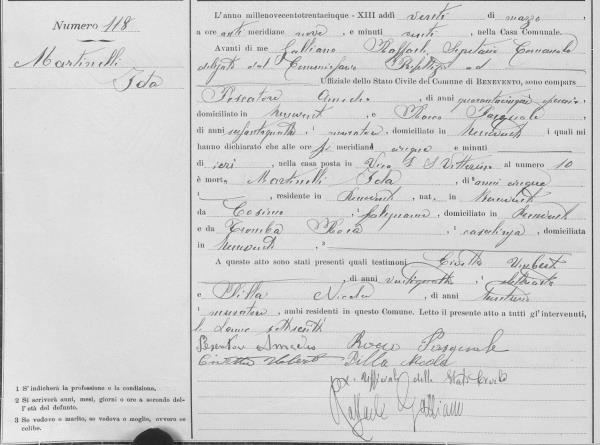 Numero 118
Martinelli
Ida
L'anno millenovecentotrentacinque - XIII addì venti di marzo,
a ore anti meridiane nove e minuti venti, nella Casa Comunale.
Avanti di me Galliano Raffaele, Segretario Comunale
delegato dal Commissario Prefettizio ad
Uffiziale dello Stato Civile del Comune di BENEVENTO, sono compars
Pescatore Amedeo, di anni quarantacinque
domiciliato in Benevento, e Rocco Pasquale,
di anni, muratore, domiciliato in Benevento i quali mi
hanno dichiarato che alle ore meridiane cinque e minuti
di ieri, nella casa posta in Vico al numero 10
è morta Martinelli Ida, di anni cinque
¹, residente in Benevento, nat. in Benevento
da Cosimo, falegname, domiciliato in Benevento
e da Tromba Rosa, casalinga, domiciliata
in Benevento, ³
A questo atto sono stati presenti quali testimoni Civetta Umberto
, di anni ventiquattro
e Pilla Nicola, di anni
muratore, ambi residenti in questo Comune. Letto il presente atto a tutti gl' intervenuti,
Pescatore Amedeo Rocco Pasquale
Civetta Umberto Pilla Nicola
L'ufficiale dello Stato Civile
Raffaele Galliano
1 S' indicherà la professione o la condizione,
2 Si scriverà anni, mesi, giorni o ore a secondo del-
l'età del defunto.
3 Se vedovo o marito, se vedova o moglie, ovvero se
celibe.